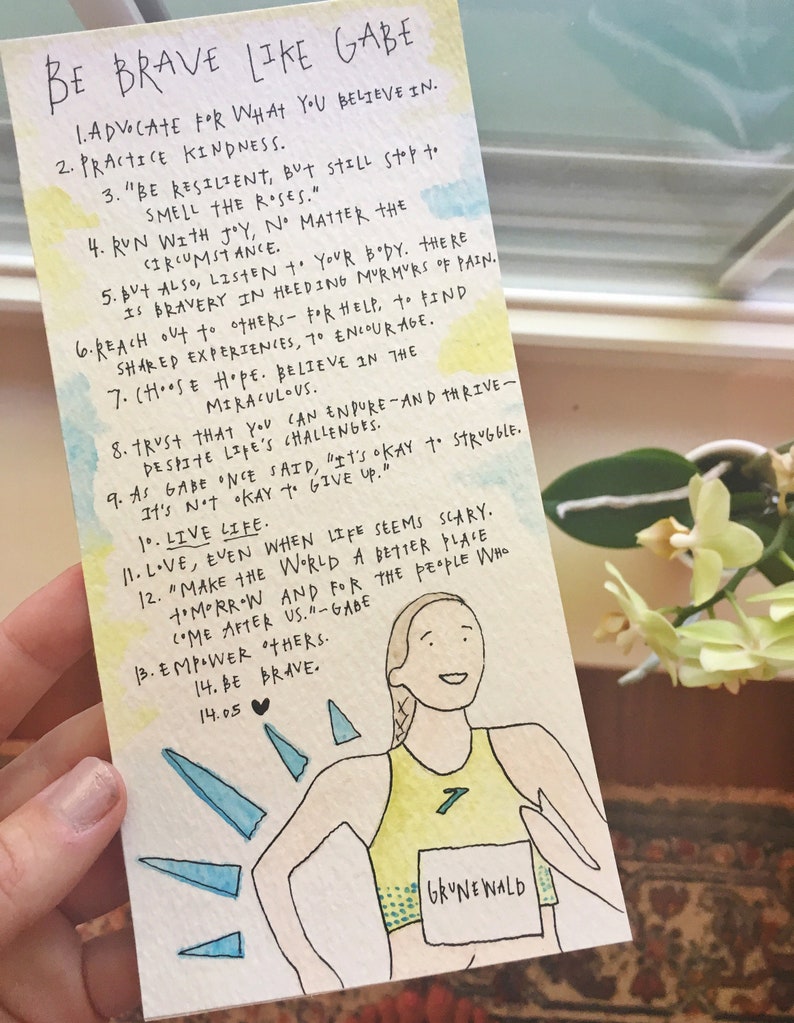 BE BRAVE LIKE GABE
1. ADVOCATE FOR WHAT YOU BELIEVE IN.
2. PRACTICE KINDNESS.
3. "BE RESILIENT, BUT STILL STOP TO
SMELL THE ROSES."
4. RUN WITH JOY, NO MATTER THE
CIRCUMSTANCE.
5. BUT ALSO, LISTEN TO YOUR BODY. THERE
IS BRAVERY IN HEEDING MURMURS OF PAIN.
6. REACH OUT TO OTHERS- FOR HELP, TO FIND
SHARED EXPERIENCES, TO ENCOURAGE.
7. CHOOSE HOPE. BELIEVE IN THE
MIRACULOUS.
8. TRUST THAT YOU CAN ENDURE-AND THRIVE-
DESPITE LIFE'S CHALLENGES.
9. AS GABE ONCE SAID, "IT'S OKAY TO STRUGGLE.
IT'S NOT OKAY TO GIVE UP."
10. LIVE LIFE.
11. LOVE, EVEN WHEN LIFE SEEMS SCARY.
12. "MAKE THE WORLD A BETTER PLACE
TOMORROW AND FOR THE PEOPLE WHO
COME AFTER US."-GABE
13. EMPOWER OTHERS.
14. BE BRAVE.
14.05 ♥
GRUNEWALD